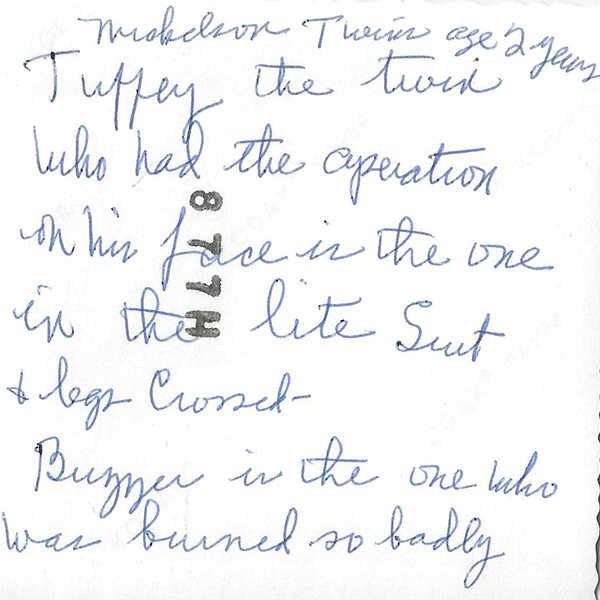 Mickelson Twins age 2 years
Tuffey the twin
who had the operation
on his face is the one
in the lite Suit
& legs Crossed-
Buzzer is the one who
was burned so badly
877H